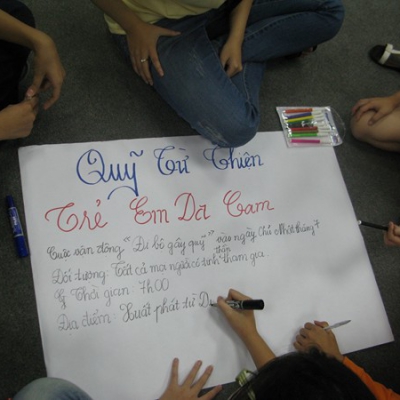 Quỹ Từ Thiện
Trẻ Em Da Cam
Cuộc vận động "Đi bộ gây quỹ" vào ngày Chủ Nhật tháng 7
Đối tượng: Tất cả mọi người có tinh thần tham gia
Thời gian: 7h00
Địa điểm: Xuất phát từ D